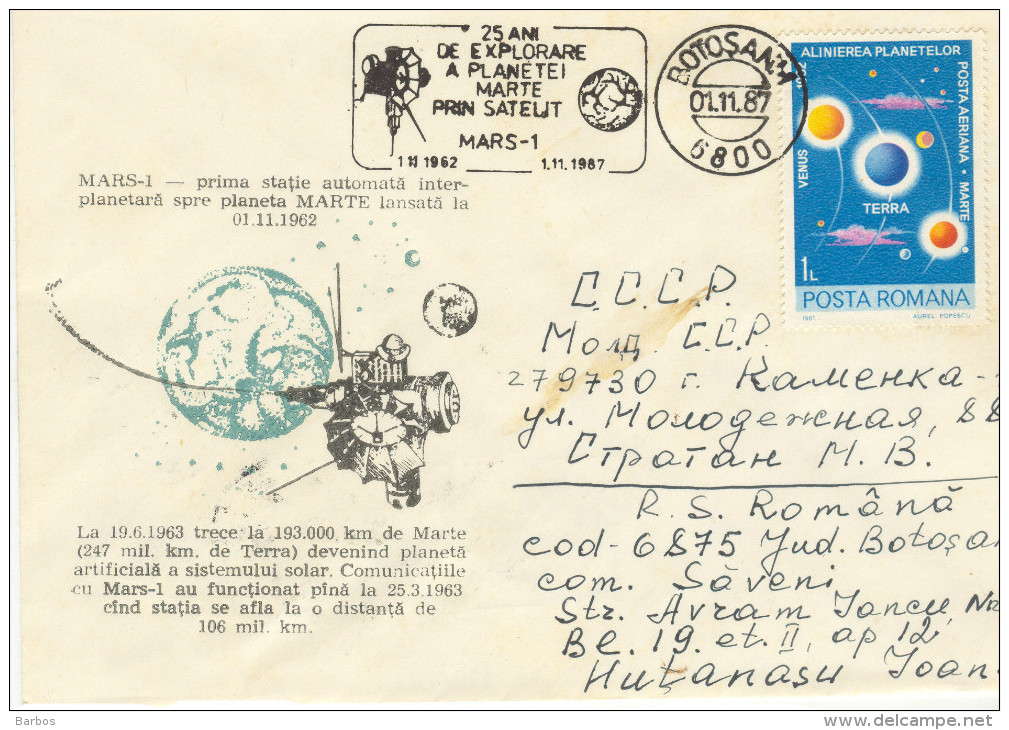 25 ANI
DE EXPLORARE
A PLANETEI
MARTE
PRIN SATELIT
MARS-1
1 11 1962 1.11.1987
BOTOȘANI
01.11.87
6800
ALINIEREA PLANETELOR
POSTA AERIANA · MARTE
VENUS
TERRA
1L
POSTA ROMANA
1981 AUREL POPESCU
MARS-1 — prima stație automată inter-
planetară spre planeta MARTE lansată la
01.11.1962
С.С.С.Р.
Молд. С.С.Р.
279730 г. Каменка-
ул. Молодежная, 88
Стратан М. В.
La 19.6.1963 trece la 193.000 km de Marte
(247 mil. km. de Terra) devenind planetă
artificială a sistemului solar. Comunicațiile
cu Mars-1 au funcționat pînă la 25.3.1963
cînd stația se afla la o distanță de
106 mil. km.
R. S. Română
cod-6875 Jud. Botoșa
com. Săveni
Str. Avram Iancu, Nr
Bl. 19. et. II, ap 12
Huțanașu Ioan
Barbos
delcampe.net